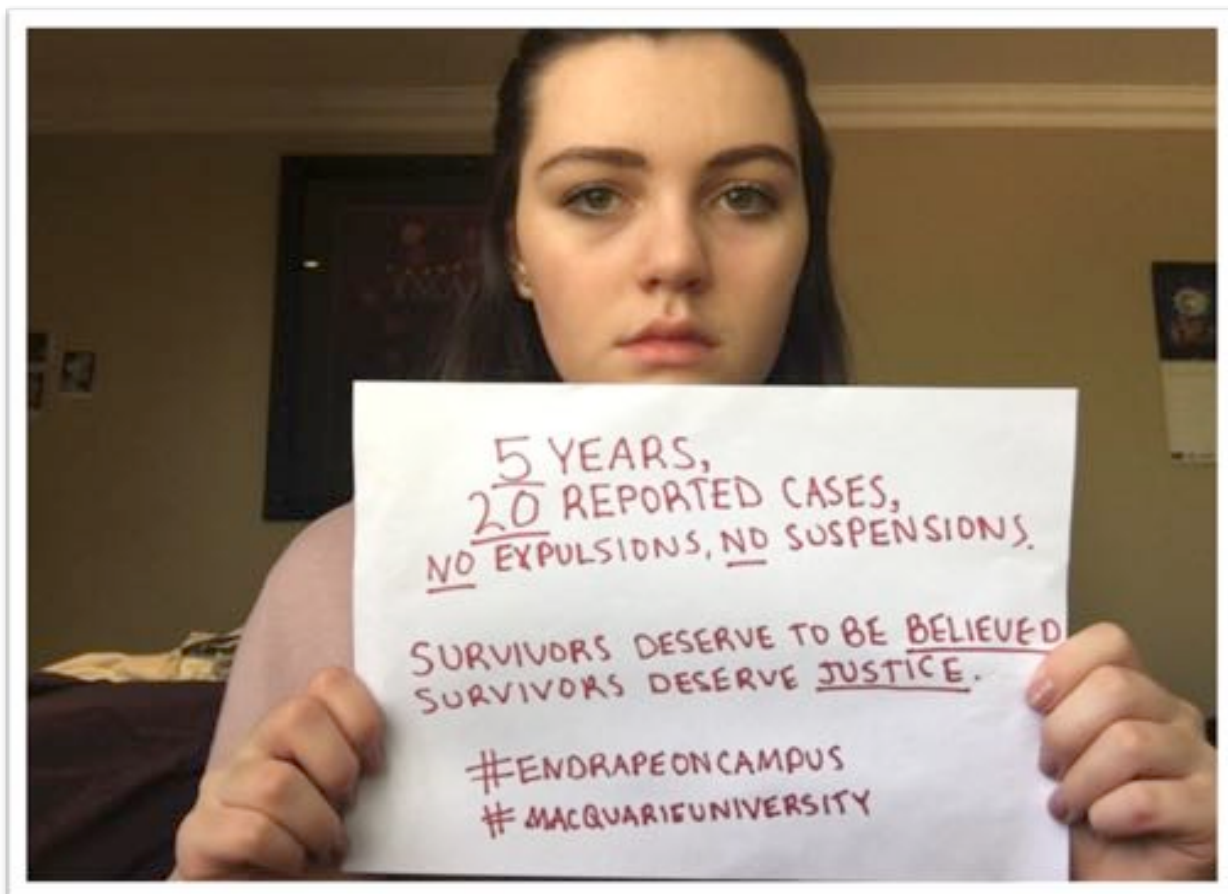 5 YEARS,
20 REPORTED CASES,
NO EXPULSIONS, NO SUSPENSIONS.
SURVIVORS DESERVE TO BE BELIEVED
SURVIVORS DESERVE JUSTICE.
#ENDRAPEONCAMPUS
#MACQUARIEUNIVERSITY